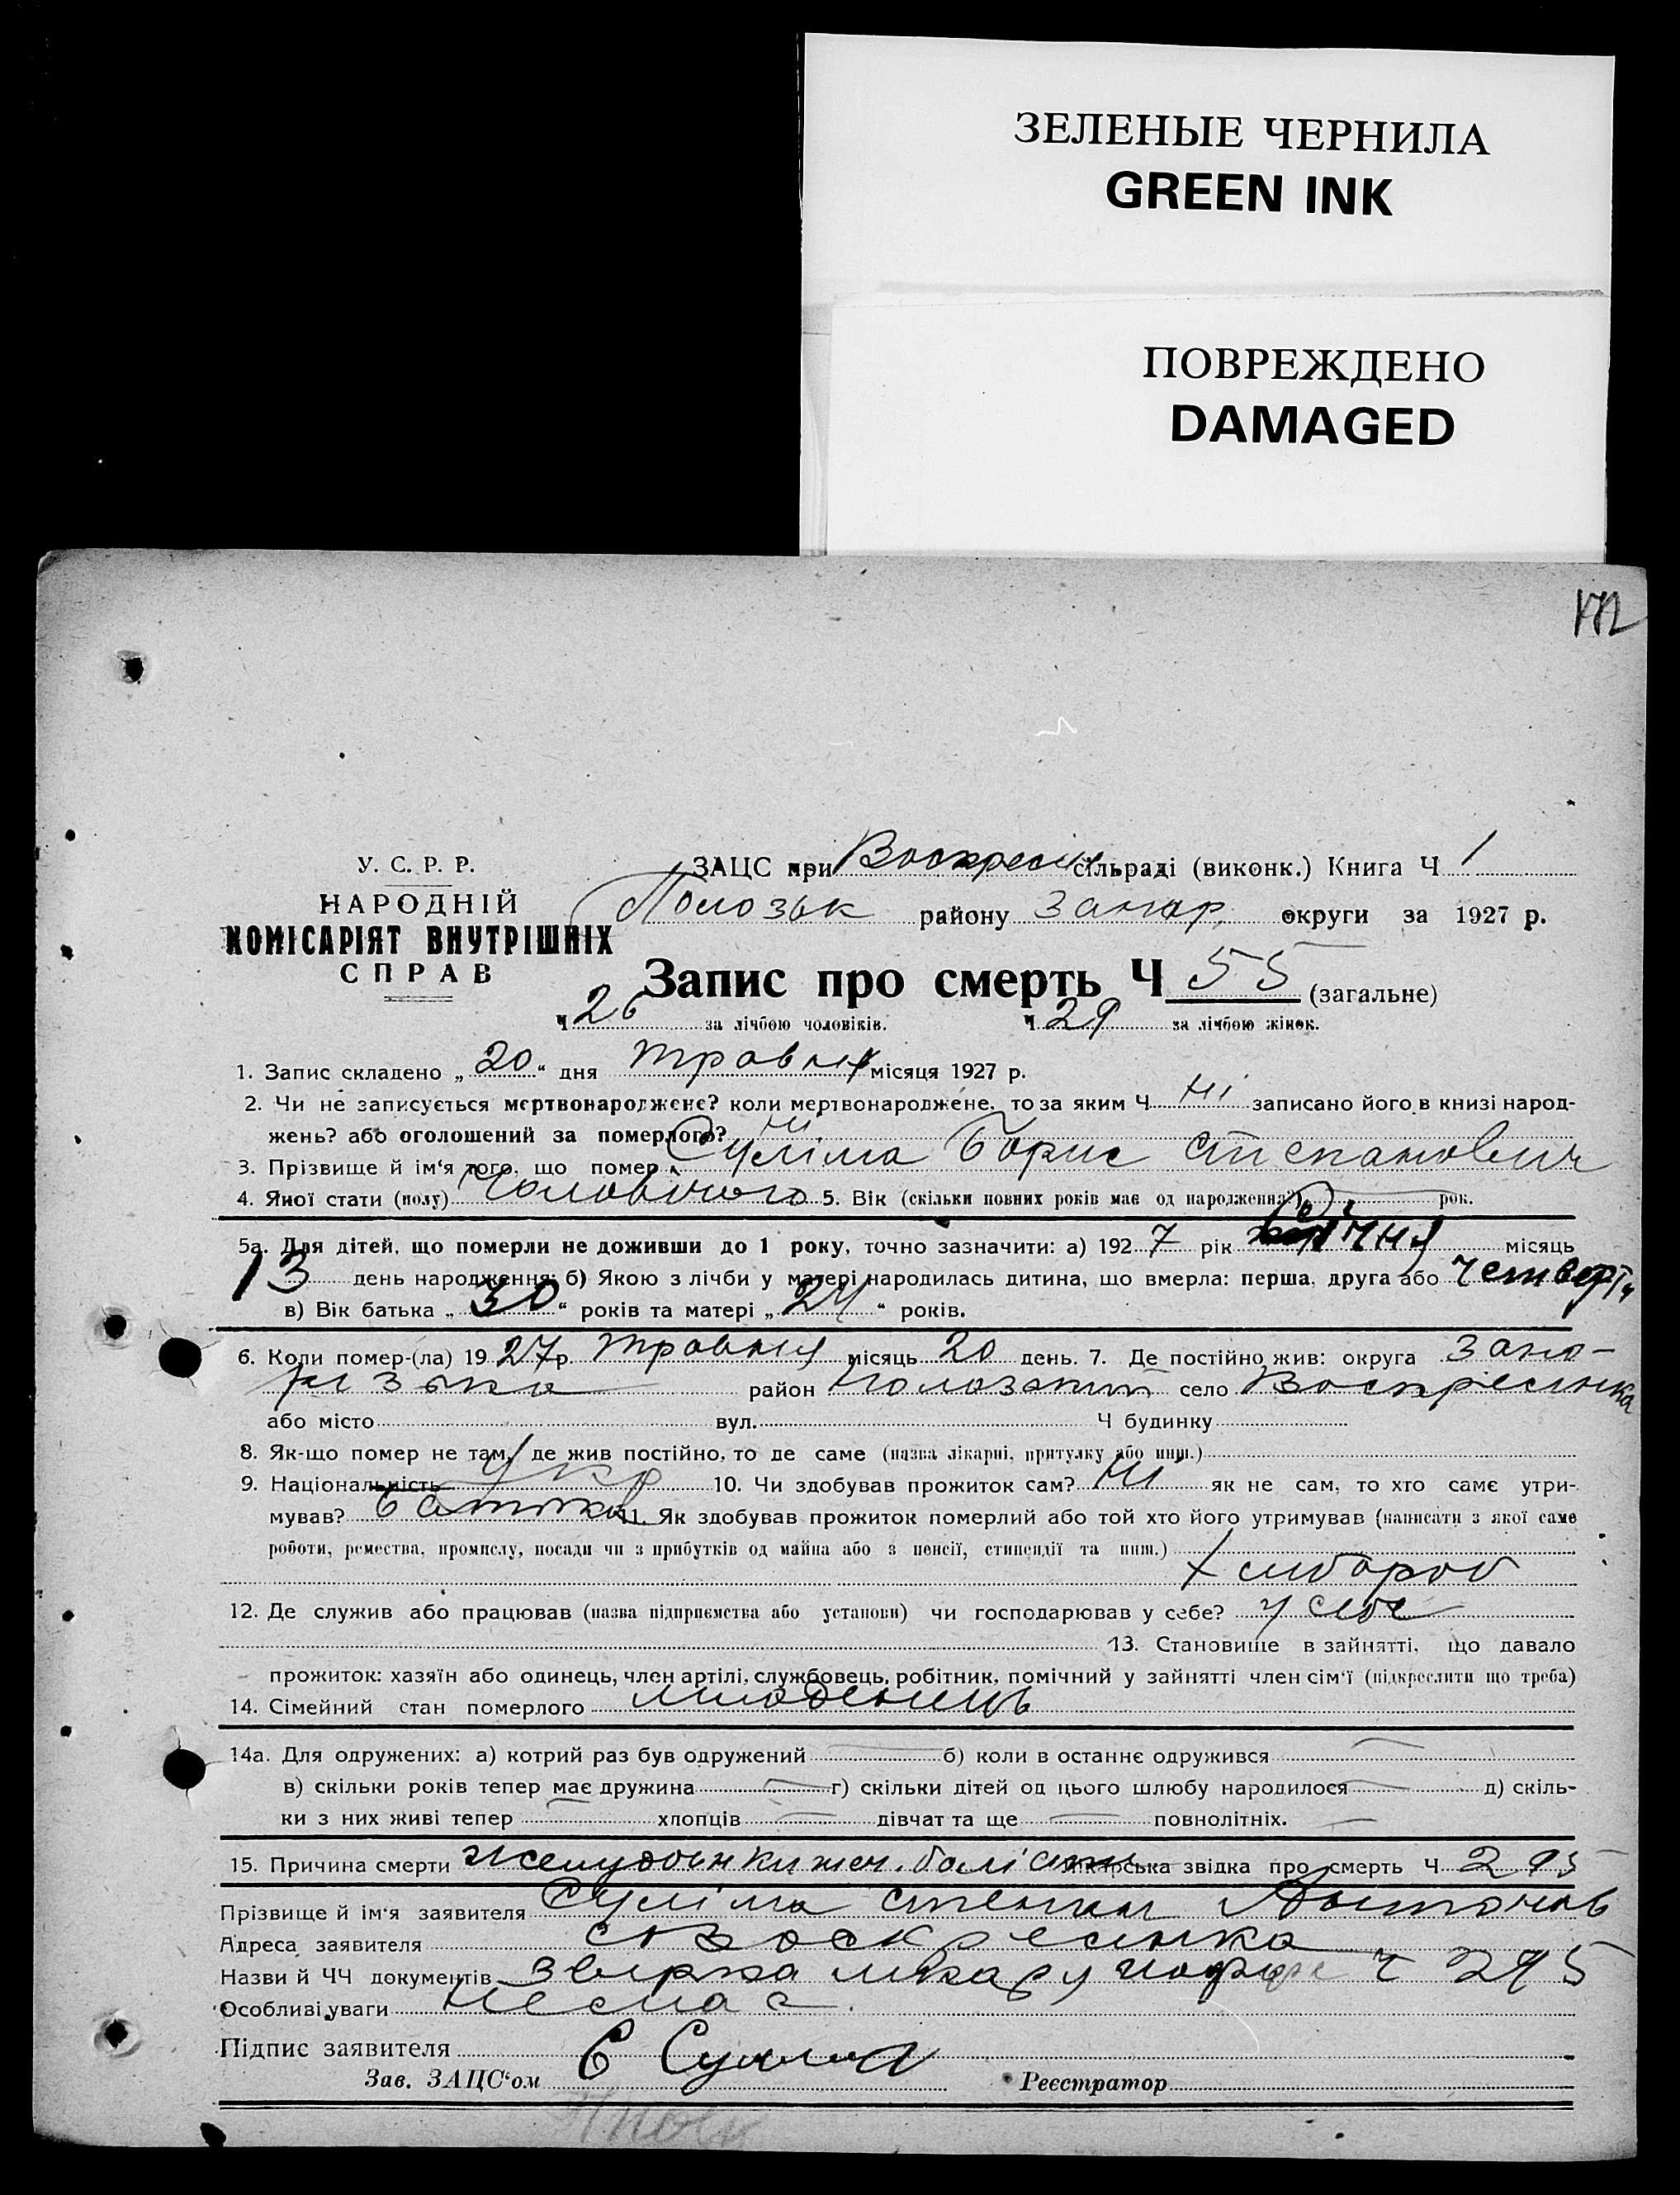 ЗЕЛЕНЫЕ ЧЕРНИЛА
GREEN INK
ПОВРЕЖДЕНО
DAMAGED
172
У. С. Р. Р.
НАРОДНІЙ
КОМІСАРІЯТ ВНУТРІШНІХ
СПРАВ
ЗАЦС при Воскресін сільраді (виконк.) Книга Ч 1
Полозьк району Запор. округи за 1927 р.
Запис про смерть Ч 55 (загальне)
Ч 26 за лічбою чоловіків. Ч 29 за лічбою жінок.
1. Запис складено „ 20 “ дня травня місяця 1927 р.
2. Чи не записується мертвонароджене? коли мертвонароджене, то за яким Ч ні записано його в книзі народ-
жень? або оголошений за померлого? ні
3. Прізвище й ім‘я того, що помер Суліма Борис Степанович
4. Якої стати (полу) Чоловічого 5. Вік (скільки повних років має од народження?) рок.
5а. Для дітей, що померли не доживши до 1 року, точно зазначити: а) 192 7 рік Січня місяць
13 день народження; б) Якою з лічби у матері народилась дитина, що вмерла: перша, друга або четверта
в) Вік батька „ 30 “ років та матері „ 24 “ років.
6. Коли помер-(ла) 19 27 р. травня місяць 20 день. 7. Де постійно жив: округа Запо-
різька район Полозький село Воскресінка
або місто вул. Ч будинку
8. Як-що помер не там, де жив постійно, то де саме (назва лікарні, притулку або инш.)
9. Національність Укр 10. Чи здобував прожиток сам? Ні як не сам, то хто саме утри-
мував? батько 11. Як здобував прожиток померлий або той хто його утримував (написати з якої саме
роботи, ремества, промислу, посади чи з прибутків од майна або з пенсії, стипендії та инш.)
хлібороб
12. Де служив або працював (назва підприємства або установи) чи господарював у себе? у себе
13. Становище в зайнятті, що давало
прожиток: хазяїн або одинець, член артілі, службовець, робітник, помічний у зайнятті член сім‘ї (підкреслити що треба)
14. Сімейний стан померлого младенець
14а. Для одружених: а) котрий раз був одружений б) коли в останнє одружився
в) скільки років тепер має дружина г) скільки дітей од цього шлюбу народилося д) скіль-
ки з них живі тепер хлопців дівчат та ще повнолітніх.
15. Причина смерти лікарська звідка про смерть Ч 295
Прізвище й ім‘я заявителя Суліма Степан
Адреса заявителя с Воскресінка
Назви й ЧЧ документів ч 295
Особливі уваги Немає.
Підпис заявителя С Сулима
Зав. ЗАЦС‘ом Реєстратор